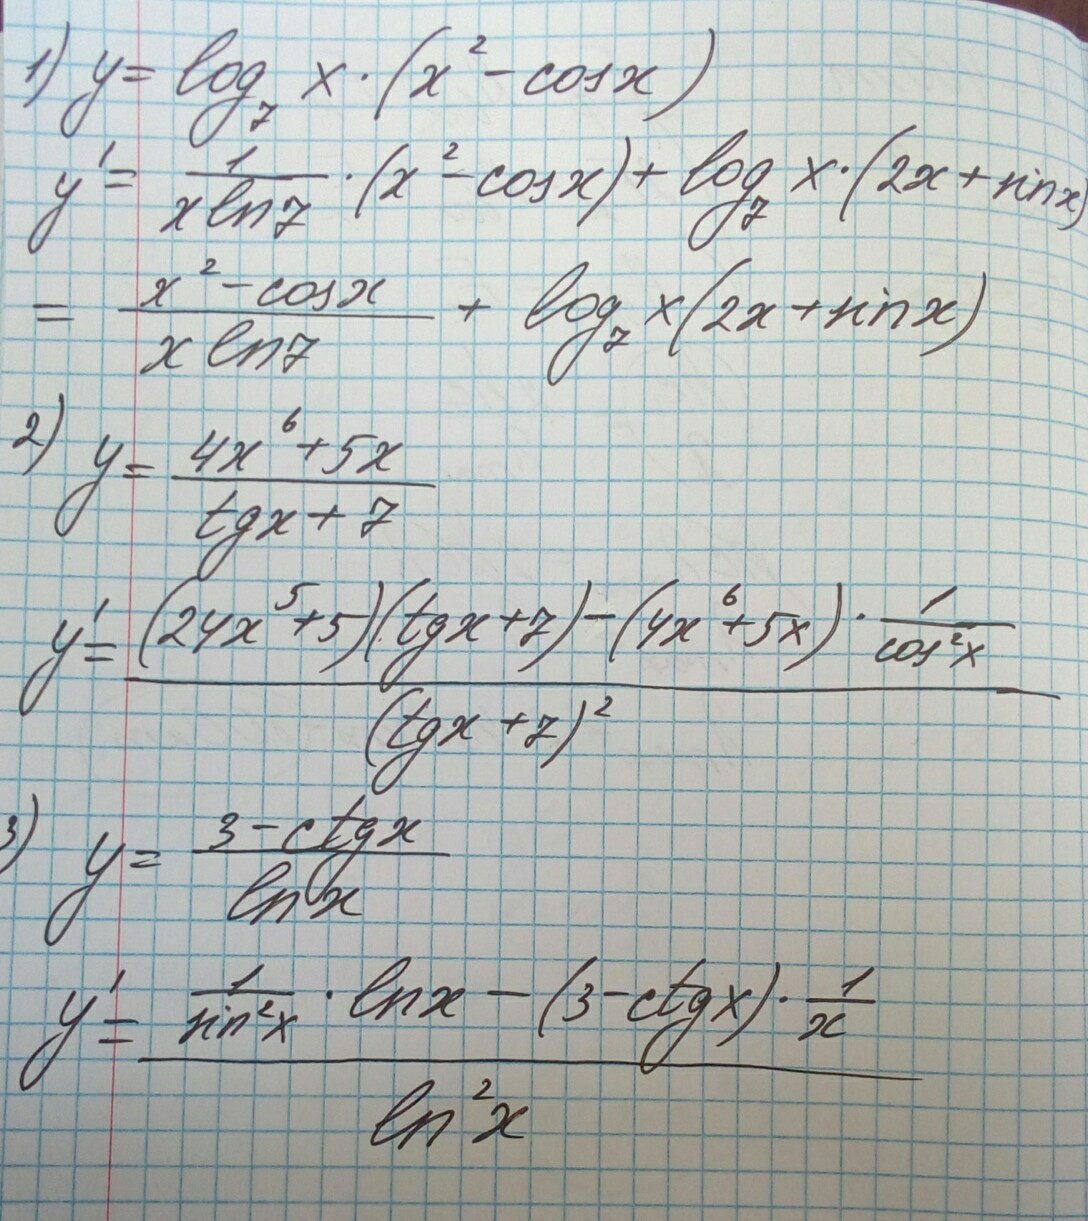 1) y = log₇ x · (x² - cosx)
y' = 1/(x ln7) · (x² - cosx) + log₇ x · (2x + sinx)
= (x² - cosx)/(x ln7) + log₇ x (2x + sinx)
2) y = (4x⁶ + 5x)/(tgx + 7)
y' = ((24x⁵ + 5)(tgx + 7) - (4x⁶ + 5x) · 1/cos²x)/(tgx + 7)²
3) y = (3 - ctgx)/(lnx)
y' = (1/sin²x · lnx - (3 - ctgx) · 1/x)/(ln²x)